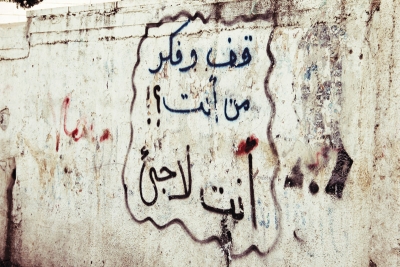 قف وفكر
من أنت؟!!
أنت لاجئ